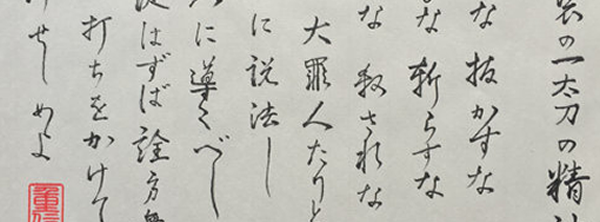 の一太刀の精
な抜かすな
な斬らすな
な殺されな
大罪人たりと
に説法し
に導くべし
はずば詮方
打ちをかけて
せしめよ